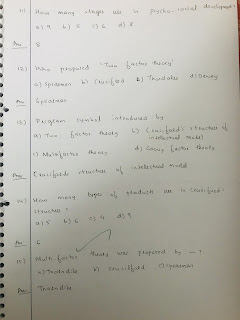 11) How many stages are in psycho-social development?
a) 9 b) 5 c) 6 d) 8
Ans 8
12) Who proposed 'Two factor theory'
a) Spearman b) Cruiford c) Thorndike d) Dewey
Ans Spearman
13) Program symbol introduced by
a) Two factor theory b) Cruiford's structure of
intellectual model
c) Multifactor theory d) Group factor theory
Ans Cruiford's structure of intellectual model
14) How many types of products are in Cruiford
structure?
a) 5 b) 6 c) 4 d) 9
Ans 6
15) Multi factor theory was proposed by — ?
a) Thorndike b) Cruiford c) Spearman
Ans Thorndike